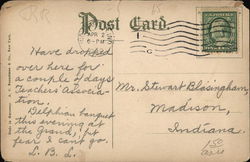 Post Card.
APR 2
6-PM
Have dropped
over here for
a couple of days
Teachers' Associa-
tion.
Delphian banquet
this evening at
the Grand, but
fear I can't go.
L. B. L.
Mr. Stewart Blasingham,
Madison,
Indiana
150